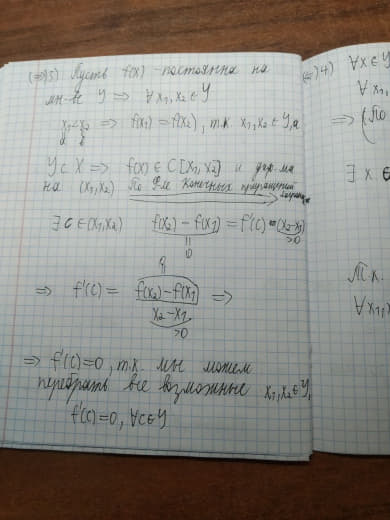 (⇒)3) Пусть f(x) - постоянна на
мн-ве Y ⇒ ∀x₁,x₂ ∈ Y
x₁<x₂ ⇒ f(x₁) = f(x₂), т.к. x₁,x₂ ∈ Y, а
Y ⊂ X ⇒ f(x) ∈ C[x₁,x₂] и
на (x₁,x₂) По Ф-ле Конечных приращений
∃ c ∈ (x₁,x₂) f(x₂) - f(x₁) = f'(c) (x₂-x₁)
0
>0
0
⇒ f'(c) = f(x₂)-f(x₁) ⇒
x₂-x₁
>0
⇒ f'(c)=0, т.к. мы можем
перебрать все возможные x₁,x₂ ∈ Y,
f'(c)=0, ∀c∈Y
4) ∀x ∈ Y
∀x₁,
⇒ (По
∃ x. ∈
Т.к.
∀x₁,x